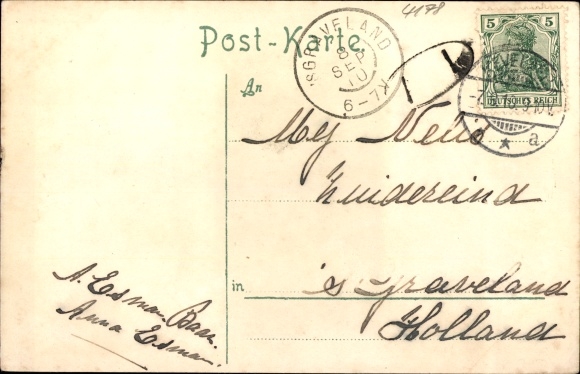 4178
Post-Karte.
'SGRAVELAND
SEP
10
6-
5
DEUTSCHES REICH
* a
An
Mej Nelie
Zuidereind
in 's Graveland
Holland
A. Esman Baar
Anna Esman.